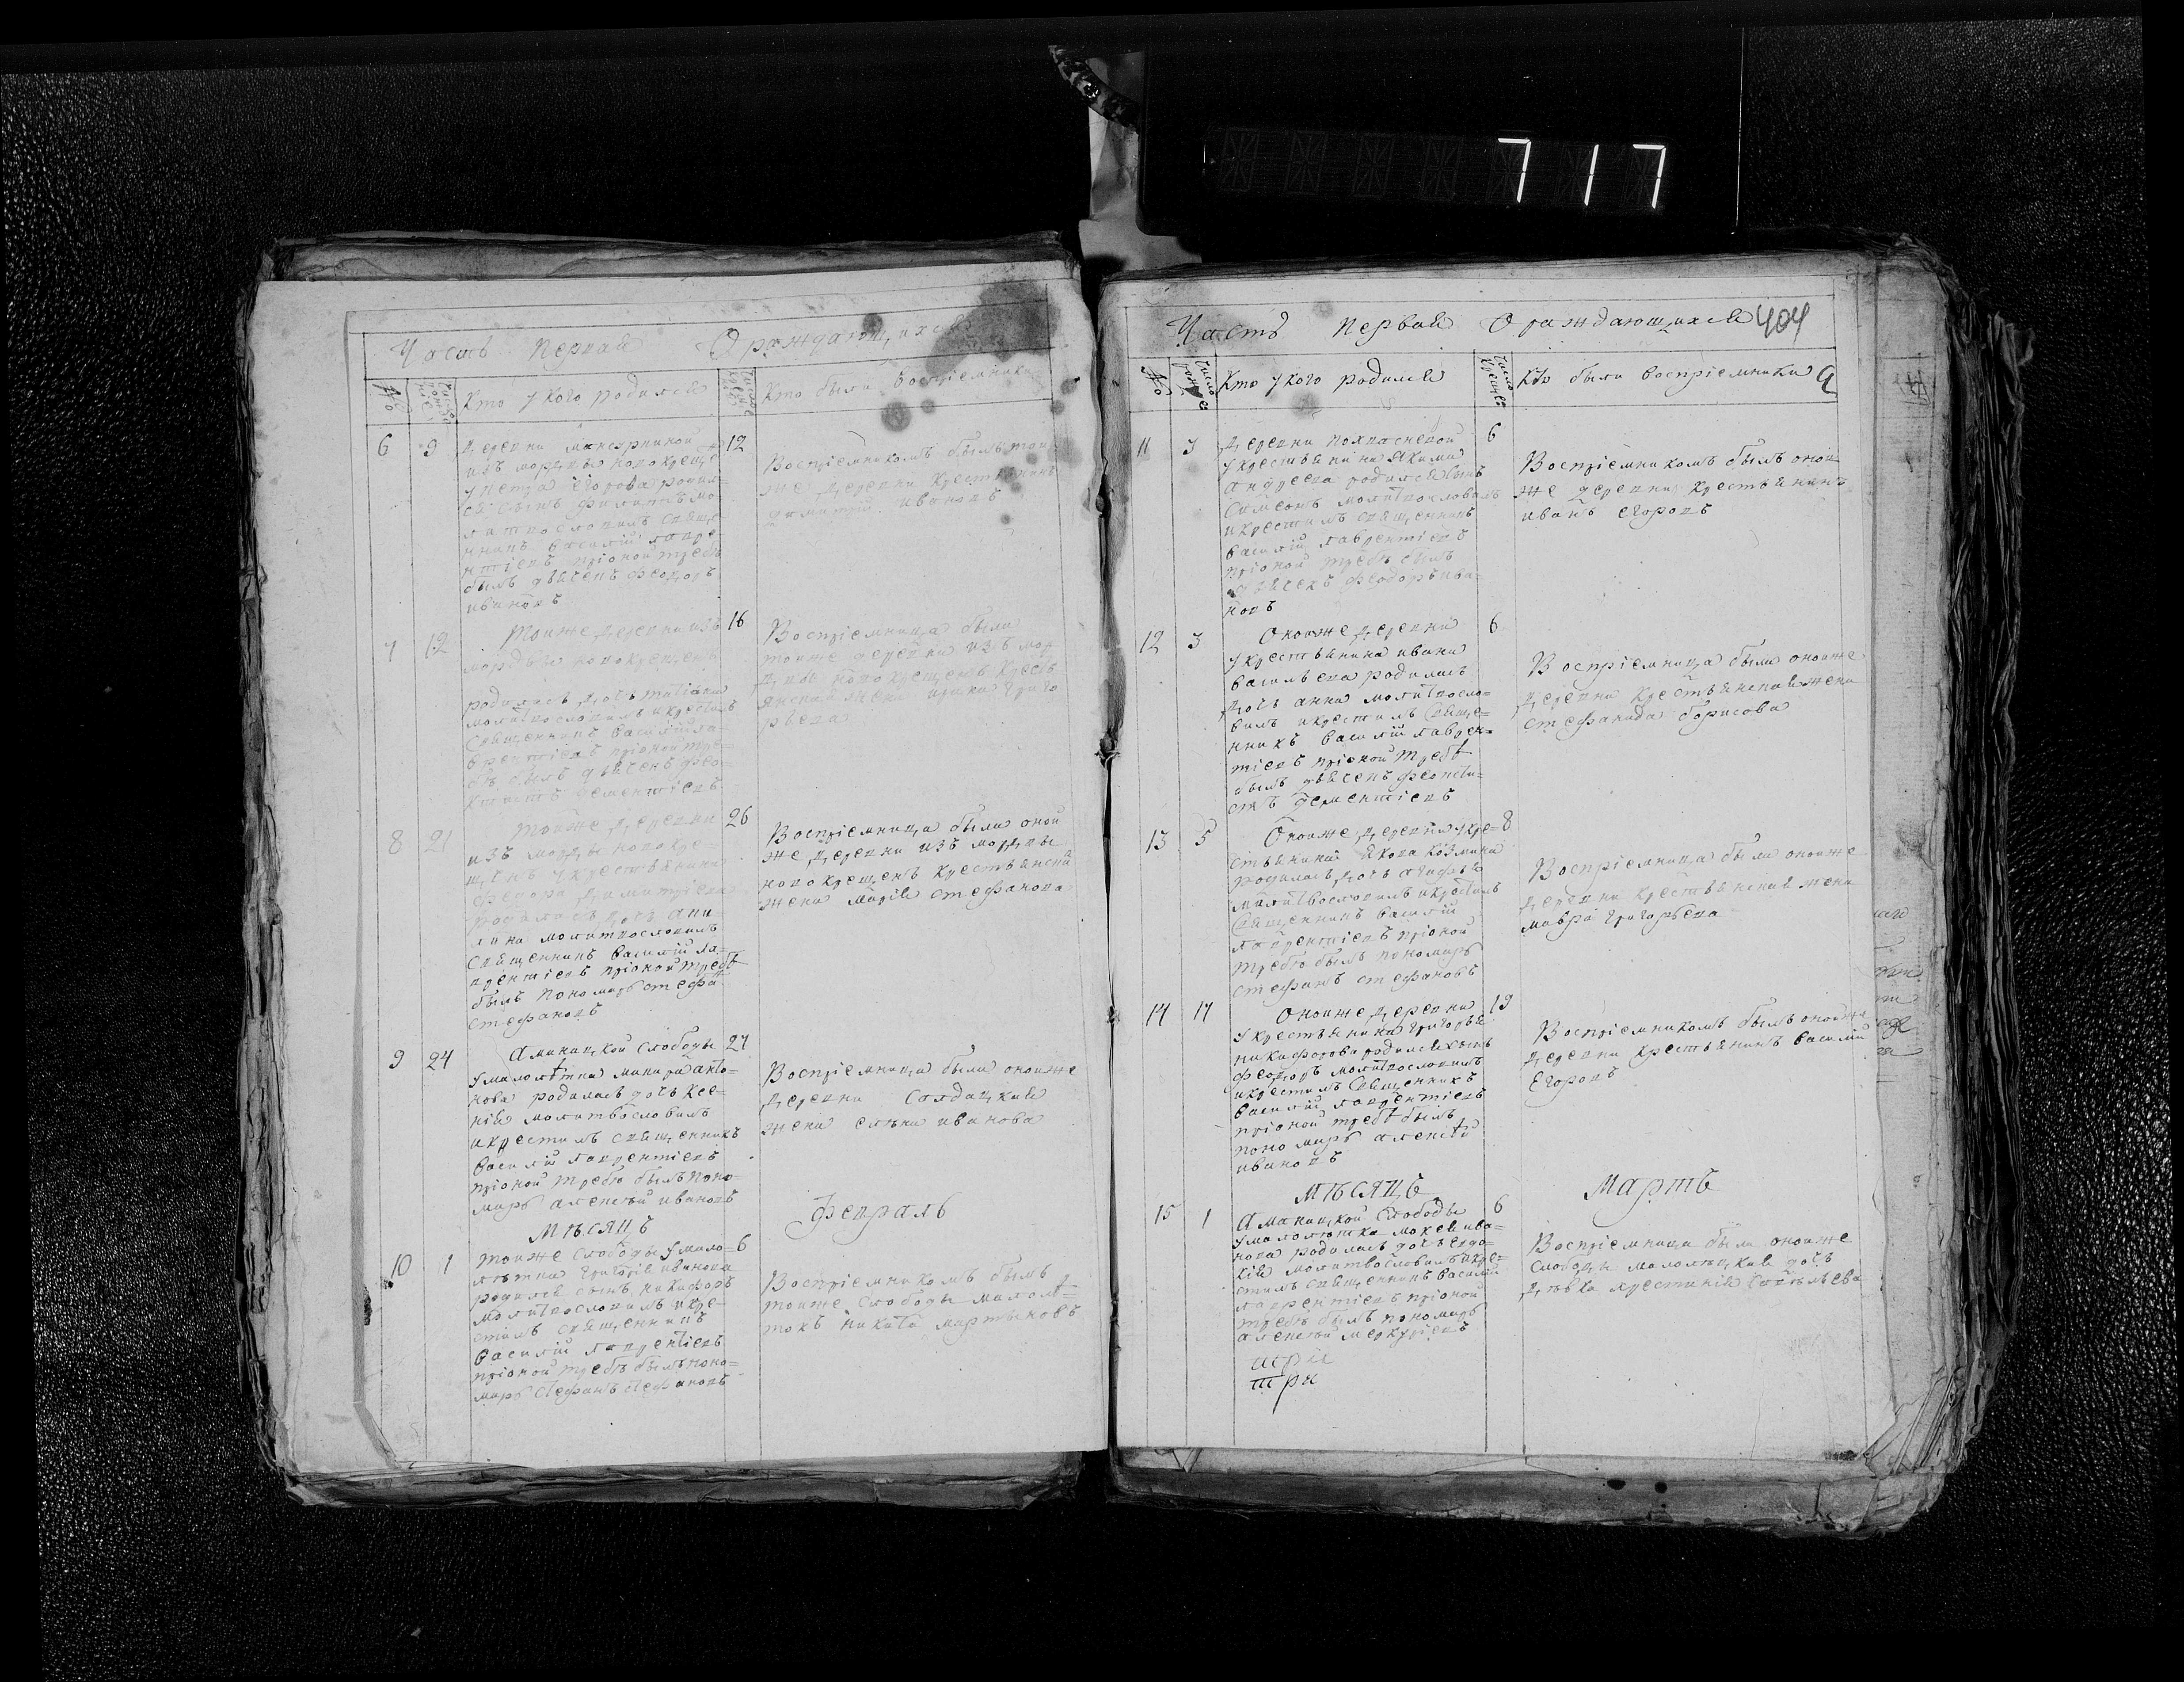 717
Часть первая О раждающихся
№
Кто у кого родился
Кто были восприемники
6 9 12
Деревни
изъ мордвы новокреще
у Петра Егорова родил=
ся сынъ Филатъ мо=
литвословилъ свяще
нникъ василiй лавре
нтiевъ прiоной требѣ
былъ дьячекъ феодоръ
ивановъ
Воспрiемникомъ былъ тои
же деревни крестьянинъ
димитрiй ивановъ
7 12 16
Тоиже деревни изъ
мордвы новокрещенъ
родилась дочь татiана
молитвословилъ икрестилъ
Священникъ василiй ла=
врентiевъ прiоной тре=
бѣ былъ дьячекъ фео=
ктистъ дементiевъ
Воспрiемница была
тоиже деревни изъ мор
двы новокрещенъ кресть
янская жена ирина григо
рьева
8 21 26
Тоиже деревни
изъ мордвы новокре=
щенъ укрестьянина
федора димитрiева
родилась дочь аку=
лина молитвословилъ
Священникъ василiй ла=
врентiевъ прiоной требѣ
былъ пономарь стефа
стефановъ
Воспрiемница была оной
же деревни изъ мордвы
новокрещенъ крестьянская
жена марiя стефанова
9 24 27
Аманацкой слободы
умалолѣтка макара анто=
нова родилась дочь ксе=
нiя молитвословилъ
икрестилъ священникъ
василiй лаврентiевъ
прiоной требѣ былъ поно=
марь алексѣй ивановъ
Воспрiемница была оноиже
деревни Солдацкая
жена елена иванова
Мѣсяцъ Февраль
10 1 6
Тоиже слободы умало=
лѣтка григорiя иванова
родился сынъ никифоръ
молитвословилъ икре=
стилъ священникъ
василiй лаврентiевъ
прiоной требѣ былъ поно=
марь стефанъ стефановъ
Воспрiемникомъ былъ
тоиже слободы малолѣ=
токъ никита мартыновъ
Часть первая О раждающихся 404
№
Кто у кого родился
Кто были воспрiемники
11 3 6
Деревни
укрестьянина Якима
андреева родился сынъ
Симеонъ молитвословилъ
икрестилъ священникъ
василiй лаврентiевъ
прiоной требѣ былъ
дьячекъ феодоръ ива=
новъ
Воспрiемникомъ былъ оной
же деревни крестьянинъ
иванъ егоровъ
12 3 6
Оноиже деревни
укрестьянина ивана
васильева родилась
дочь анна молитвосло=
вилъ икрестилъ Свяще=
нникъ василiй лаврен=
тiевъ прiоной требѣ
былъ дьячекъ феокти=
стъ дементiевъ
Воспрiемница была оноиже
деревни крестьянская жена
стефанида борисова
13 5 8
Оноиже деревни укре=
стьянина Якова козмина
родилась дочь агафья
молитвословилъ икрестилъ
Священникъ василiй
лаврентiевъ прiоной
требѣ былъ пономарь
стефанъ стефановъ
Воспрiемница была оноиже
деревни крестьянская жена
мавра григорьева
14 17 19
Оноиже деревни
укрестьянина григорья
никифорова родился сынъ
феодоръ молитвословилъ
икрестилъ священникъ
василiй лаврентiевъ
прiоной требѣ былъ
пономарь алексѣй
ивановъ
Воспрiемникомъ былъ оноиже
деревни крестьянинъ василiй
Егоровъ
Мѣсяцъ Мартъ
15 1 6
Аманацкой слободы
умалолѣтка мокея ива=
нова родилась дочь евдо=
кiя молитвословилъ икре=
стилъ священникъ василiй
лаврентiевъ прiоной
требѣ былъ пономарь
алексѣй меркурiевъ
Воспрiемница была оноиже
слободы малолѣцкая дочь
дѣвка